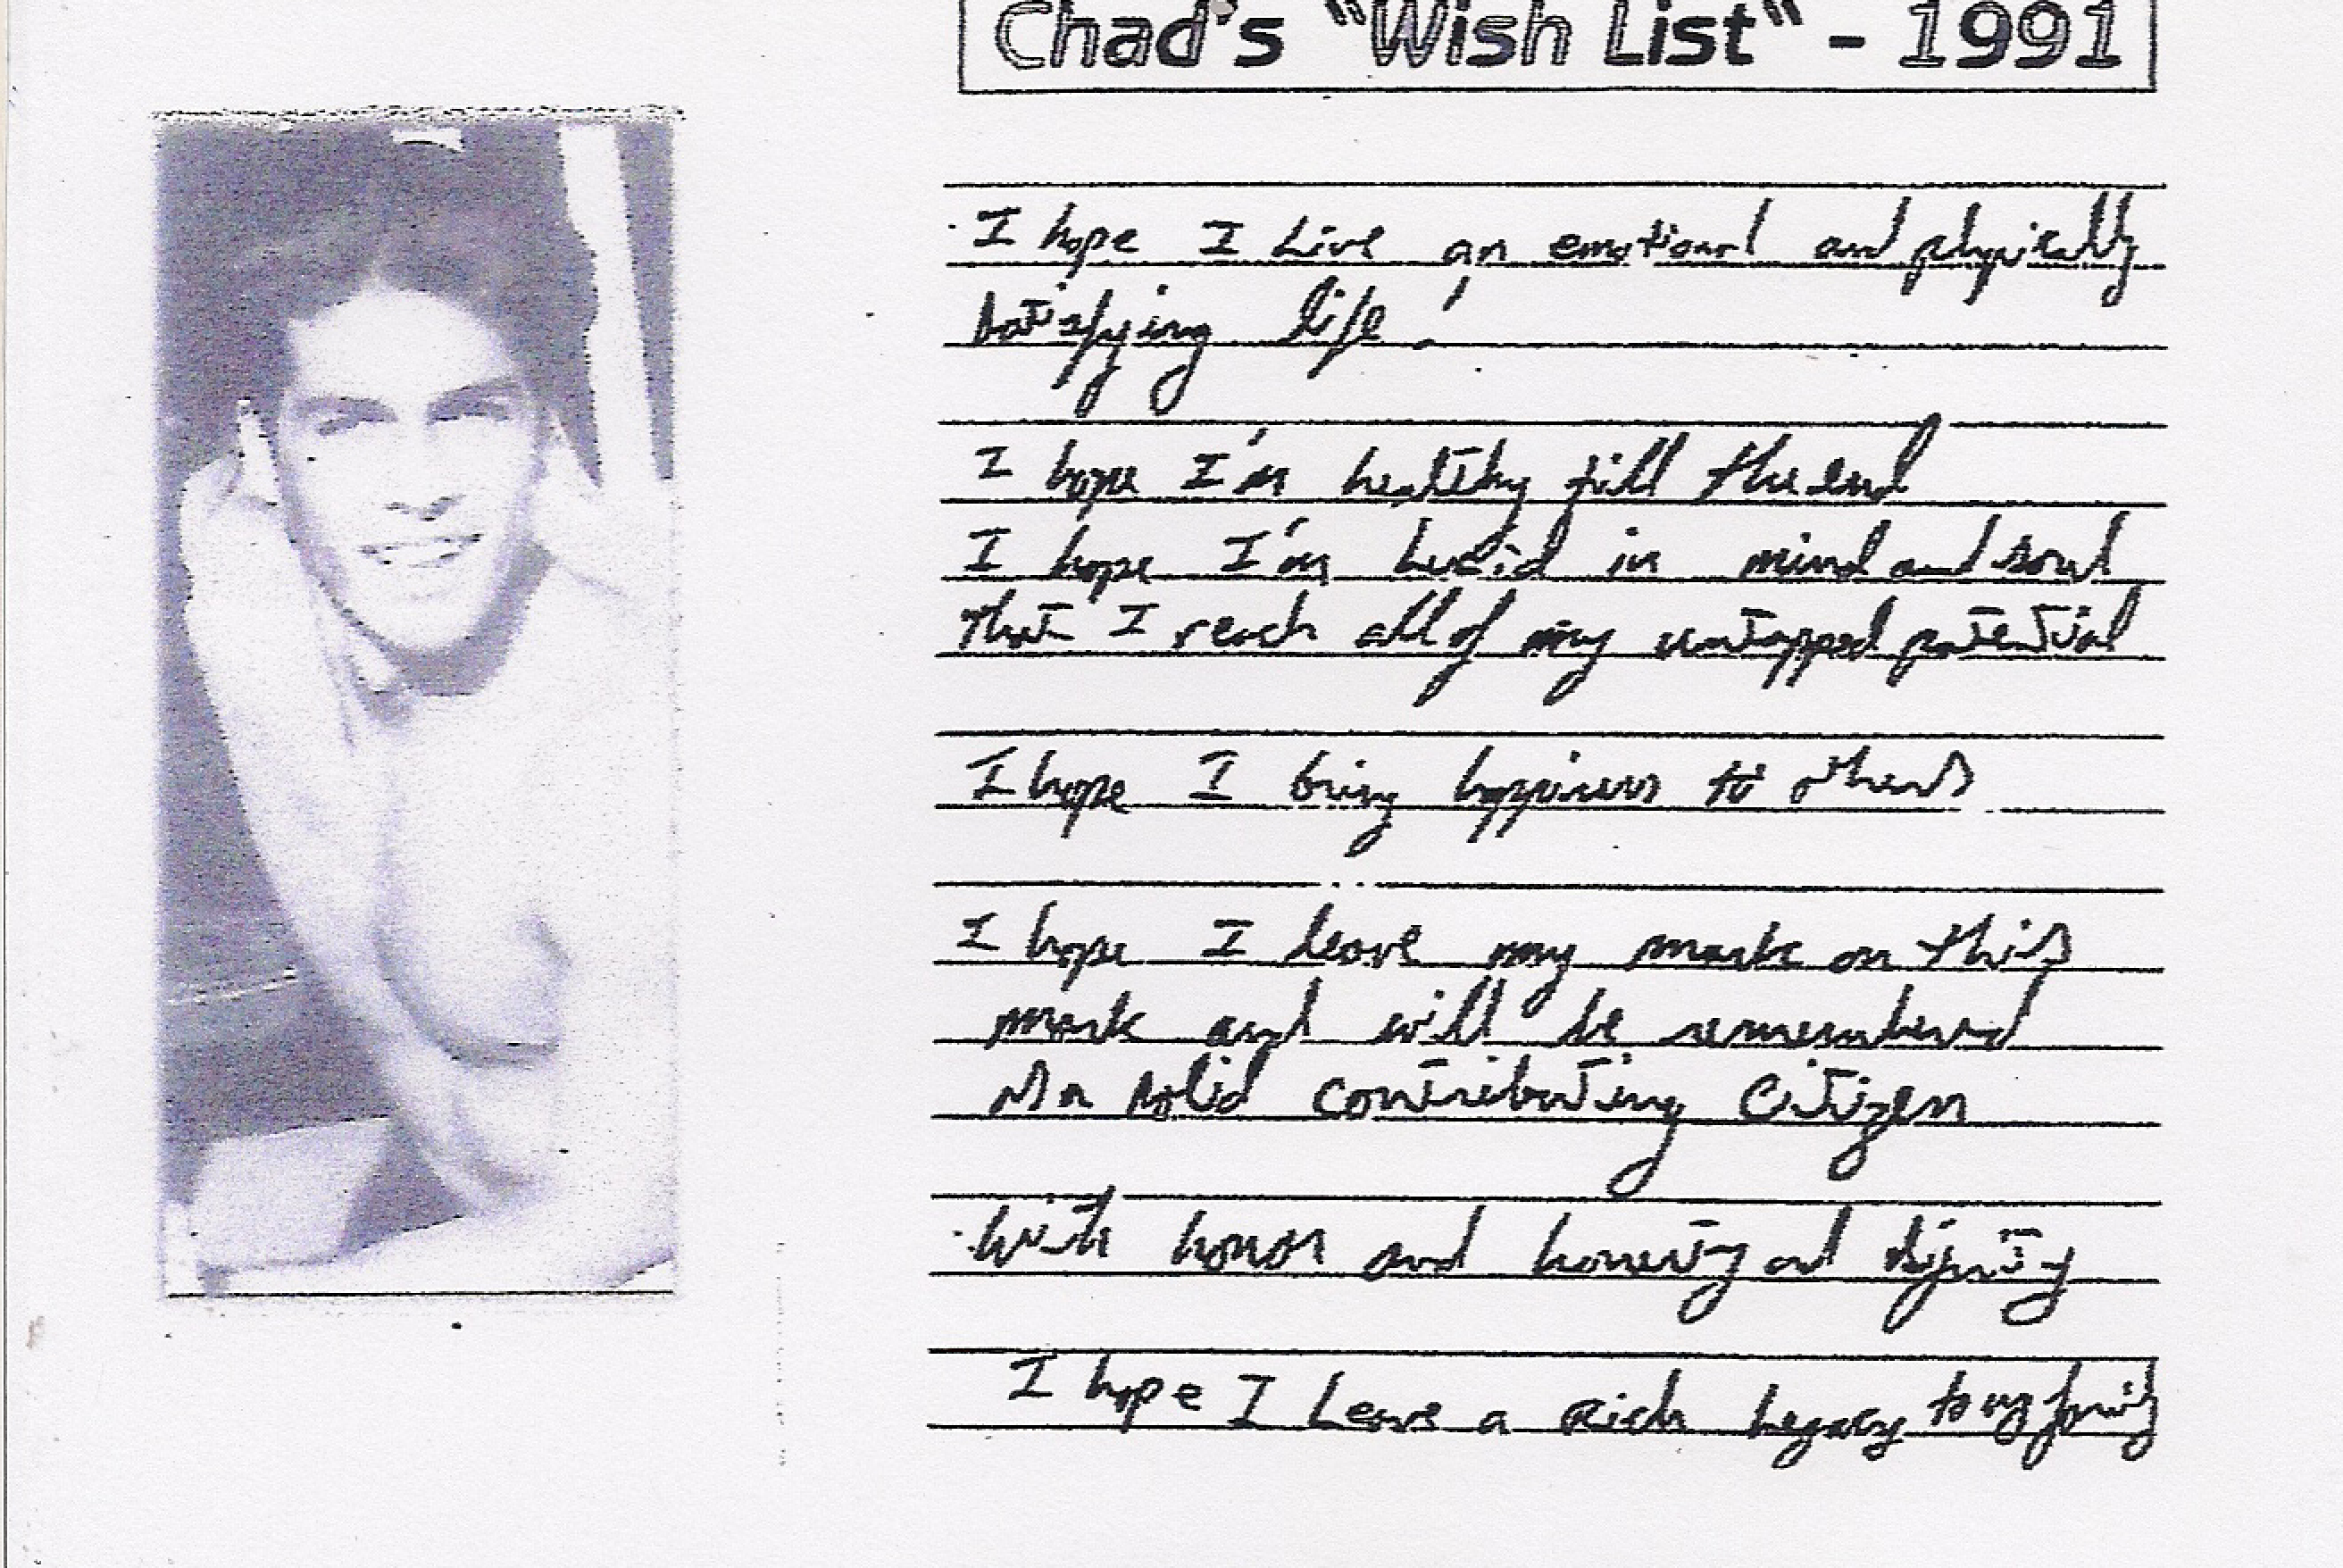 Chad's "Wish List" - 1991
I hope I Live an emotional and physically
satisfying life!
I hope I'm healthy till the end
I hope I'm lucid in mind and soul
that I reach all of my untapped potential
I hope I bring happiness to others
I hope I leave my mark on this
mark and will be remembered
As a solid contributing Citizen
with honor and honesty and dignity
I hope I Leave a Rich Legacy to my family